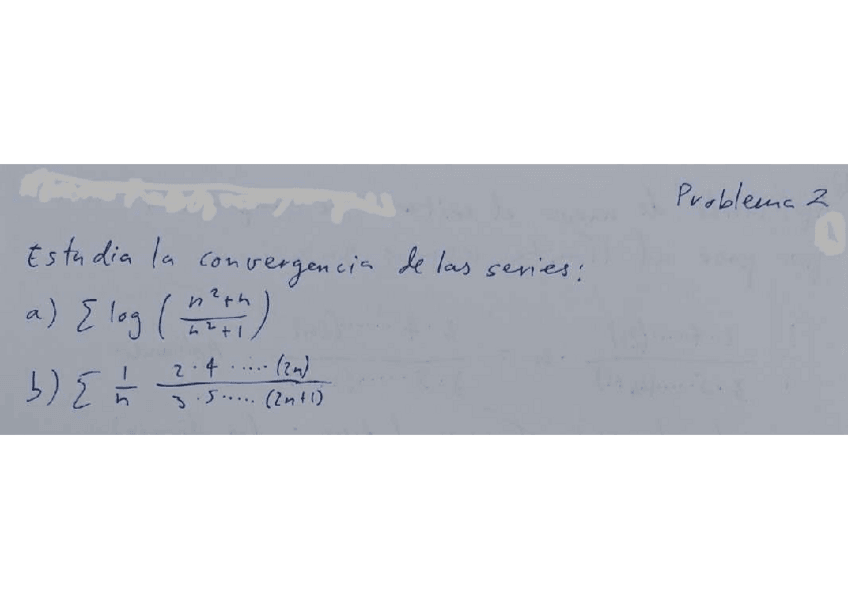 Problema 2
Estudia la convergencia de las series:
a) Σ log ( n²+n / n²+1 )
b) Σ 1/n 2·4·····(2n) / 3·5·····(2n+1)